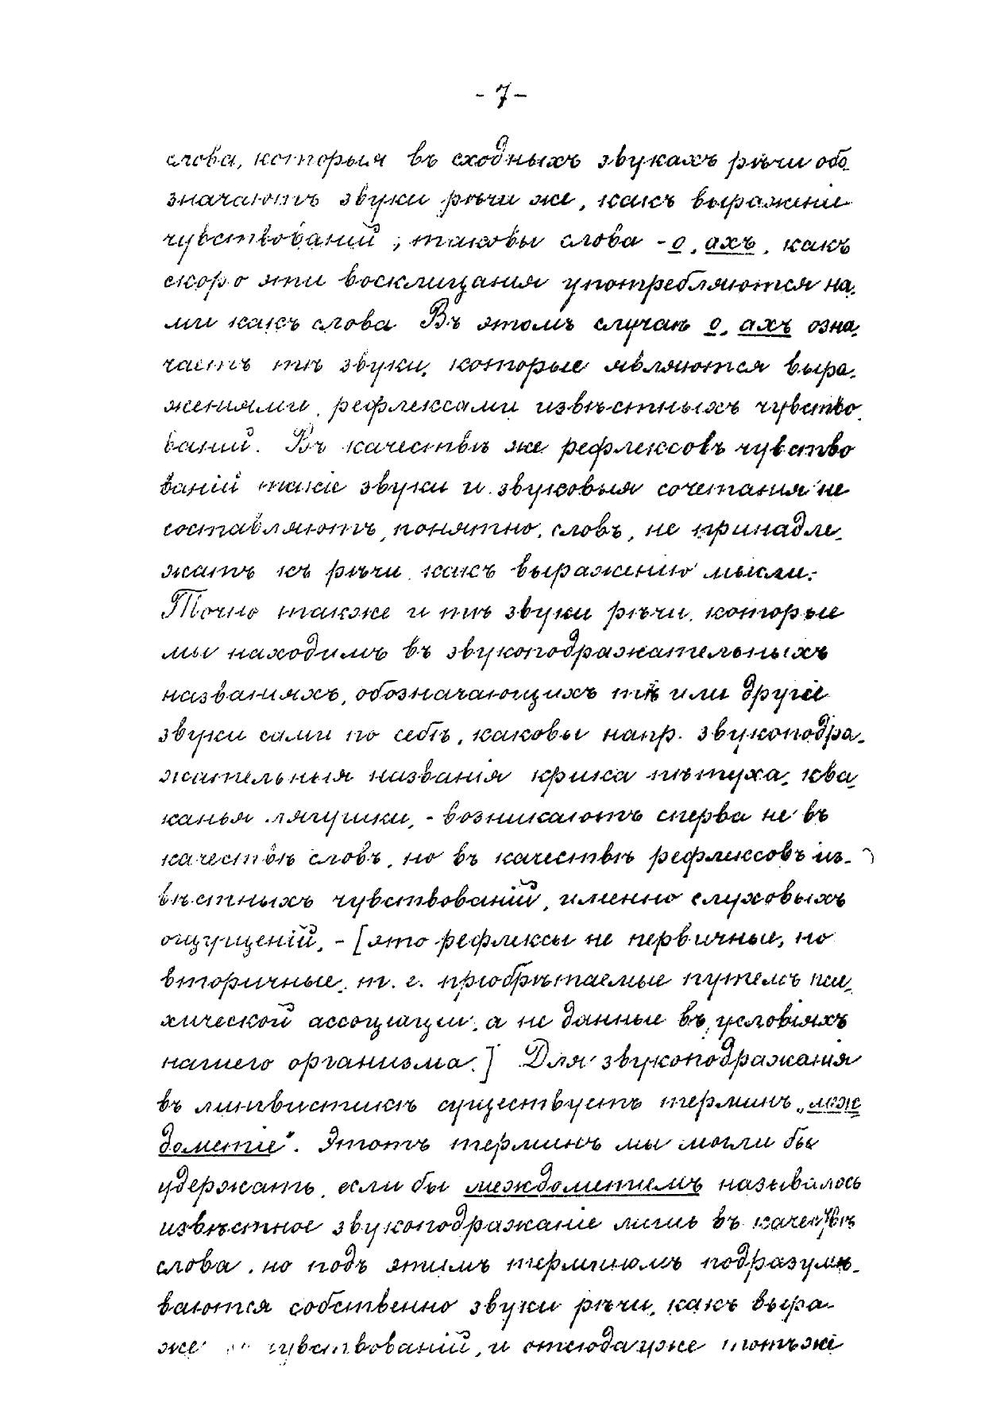 - 7 -
слова, которыя въ сходныхъ звукахъ рѣчи обо
значаютъ звуки рѣчи же, какъ выраженіе
чувствованій; таковы слова - о, ахъ, какъ
скоро эти восклицанія употребляются на-
ми какъ слова Въ этомъ случаѣ о, ахъ озна-
чаетъ тѣ звуки, которые являются выра-
женіями, рефлексами извѣстныхъ чувство-
ваній. Въ качествѣ же рефлексовъ чувство
ваній такіе звуки и звуковыя сочетанія не
составляютъ, понятно, словъ, не принадле-
жатъ къ рѣчи, какъ выраженію мысли.
Точно также и тѣ звуки рѣчи, которые
мы находимъ въ звукоподражательныхъ
названіяхъ, обозначающихъ тѣ или другіе
звуки сами по себѣ, каковы напр. звукоподра-
жательныя названія крика пѣтуха, ква-
канья лягушки, - возникаютъ сперва не въ
качествѣ словъ, но въ качествѣ рефлексовъ из-
вѣстныхъ чувствованій, именно слуховыхъ
ощущеній, - [это рефлексы не первичные, но
вторичные, т. е. пріобрѣтаемые путемъ пси-
хической ассоціаціи, а не данные въ условіяхъ
нашего организма.] Для звукоподражанія
въ лингвистикѣ существуетъ терминъ „меж
дометіе". Этотъ терминъ мы могли бы
удержать, если бы междометіемъ называлось
извѣстное звукоподражаніе лишь въ качествѣ
слова, но подъ этимъ терминомъ подразумѣ-
ваются собственно звуки рѣчи, какъ выра-
же чувствованій, и отсюда уже тотъ же